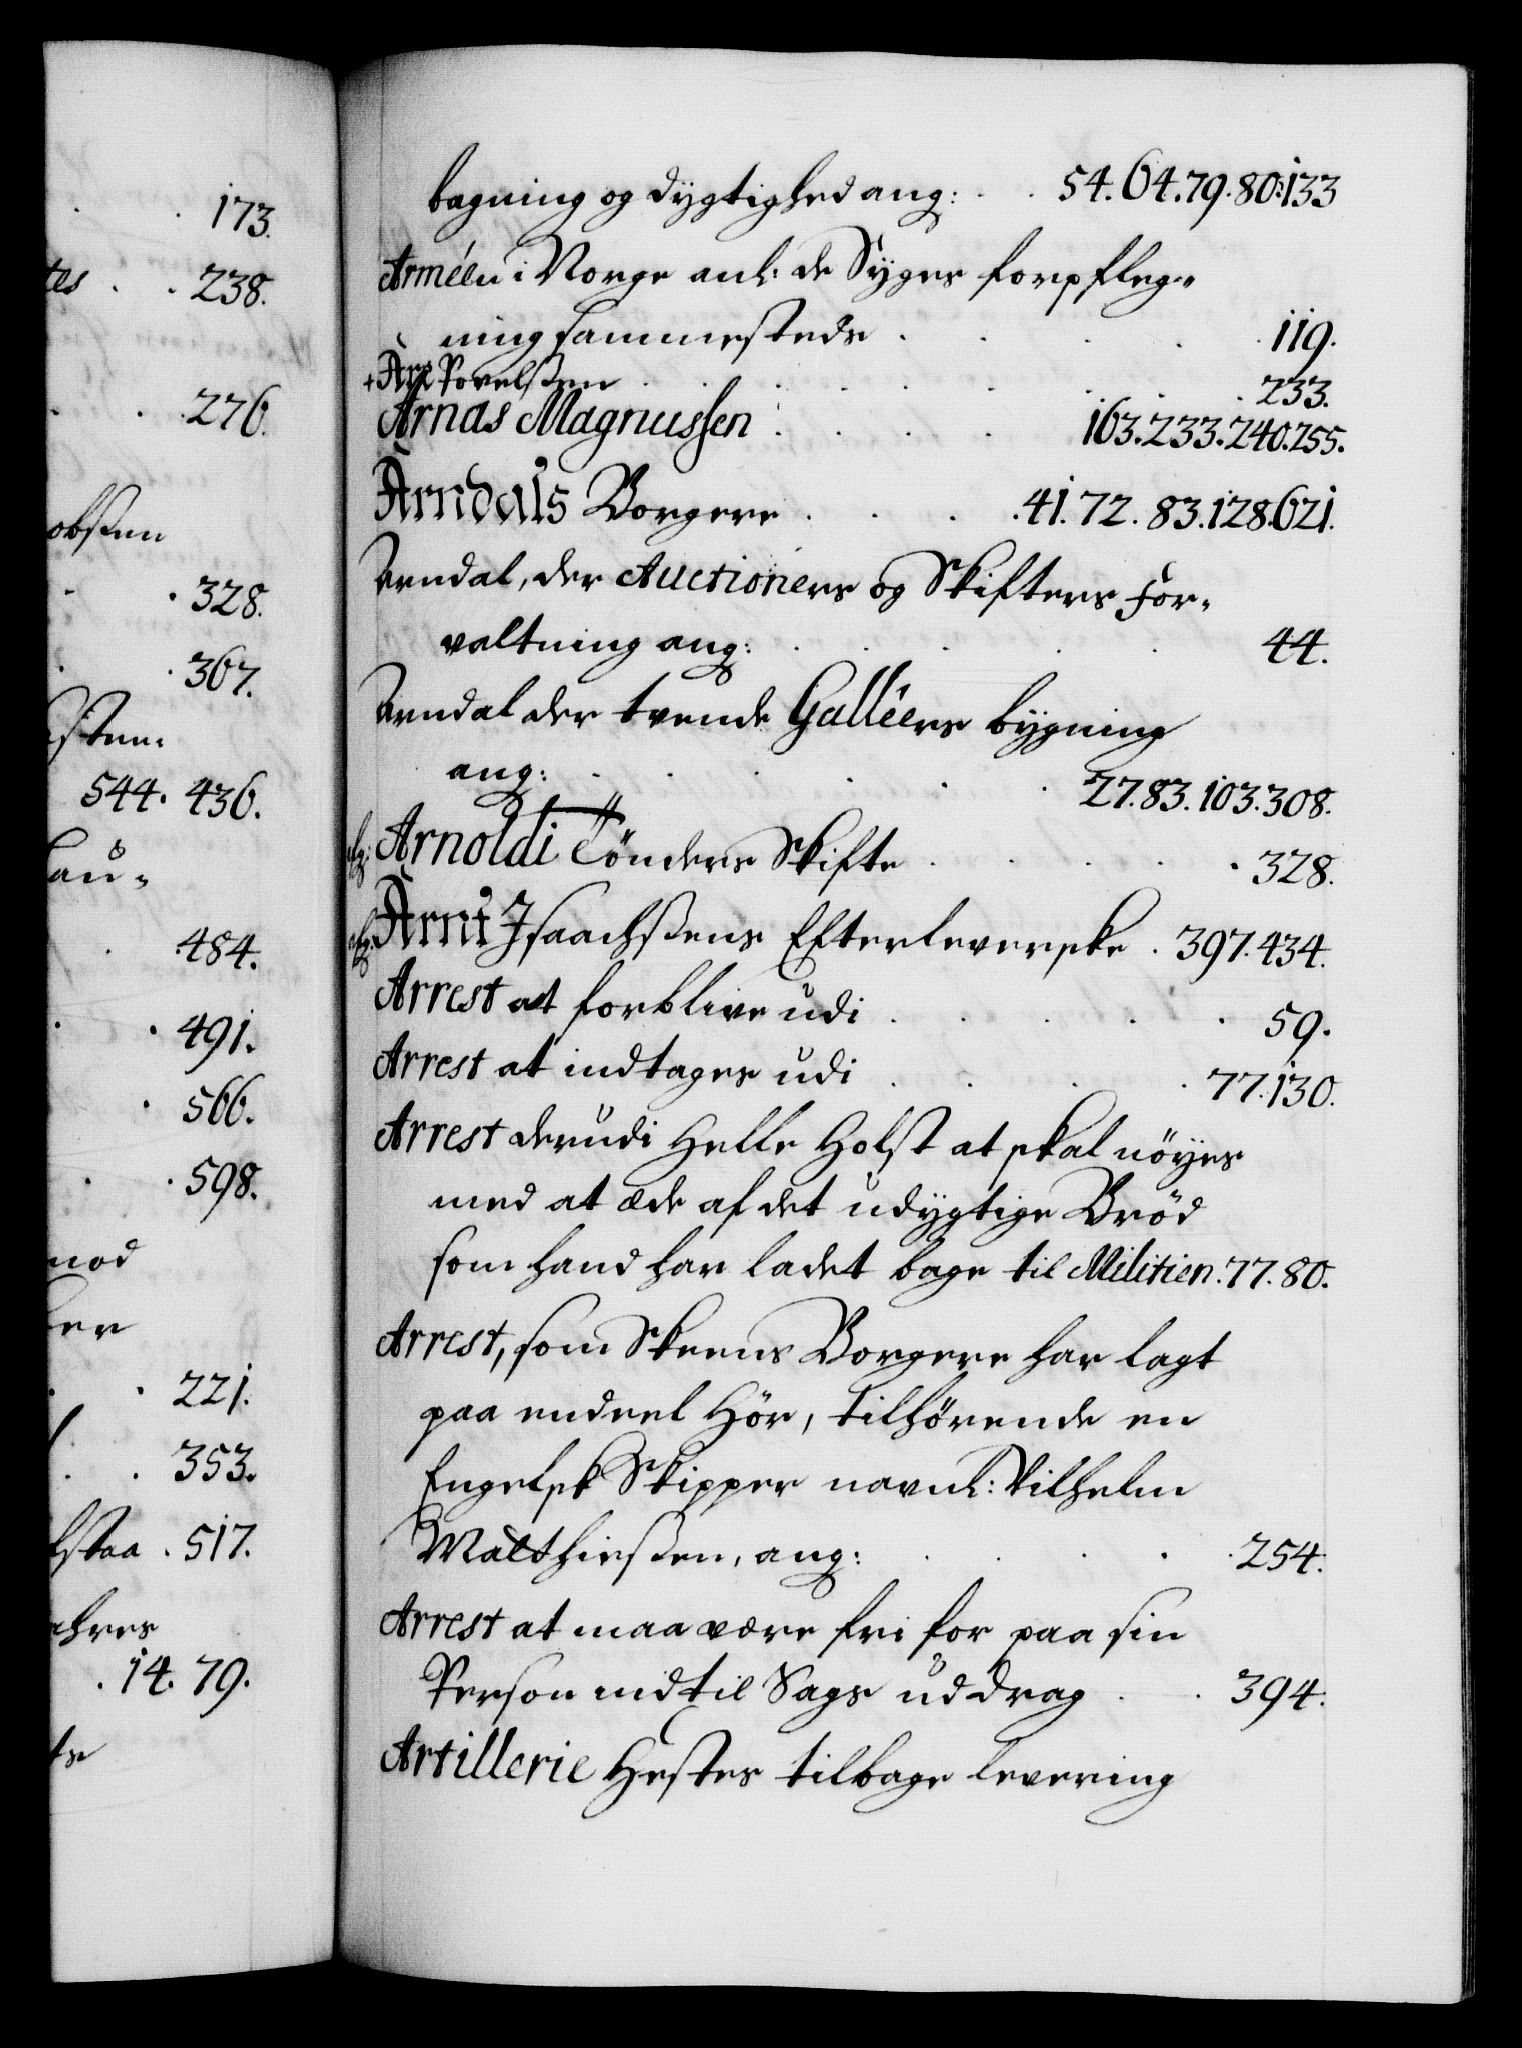 173.
tes . . 238.
. . 276.
obssen
. . 328.
. . 367.
isten.
544. 436.
lau-
. 484.
. . 491.
. 566.
. . 598.
mod
ker
. . 221.
. . 353.
lstaa . 517.
ahres
. 14. 79.
te
bagning og dygtighed ang: . . 54. 64. 79. 80. 133
Arméen i Norge anl: de Syges forpfleg-
ning sammesteds . . . . 119.
+ Are Povelssen . . . . 233.
Arnas Magnussen . . . . 163. 233. 240. 255.
Arndals Borgere . . . . 41. 72. 83. 128. 621.
Arendal, der Auctioners og Skifters For-
valtning ang: . . . . 44.
Arendal der tvende Galléers bygning
ang: . . . . 27. 83. 103. 308.
Arnoldi Tönders Skifte . . . . 328.
Arnt Isaachssens Efterleverske . 397. 434.
Arrest at forblive udi . . . . 59.
Arrest at indtages udi . . . . 77. 130.
Arrest derudi Helle Holst at skal nöyes
med at æde af det udygtige Bröd
som hand har ladet bage til Militien. 77. 80.
Arrest, som Skeens Borgere har lagt
paa endeel Hör, tilhörende en
Engelsk Skipper navnl: Vilhelm
Malthiessen, ang: . . . . 254.
Arrest at maa være fri for paa sin
Person indtil Sags uddrag . . 394.
Artillerie Hestes tilbage levering